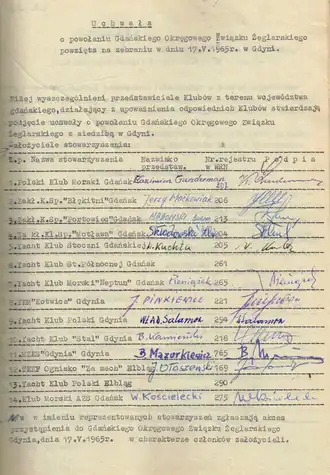 U c h w a ł a
o powołaniu Gdańskiego Okręgowego Związku Żeglarskiego
powzięta na zebraniu w dniu 17.V.1965r. w Gdyni.
Niżej wyszczególnieni przedstawiciele Klubów z terenu województwa
gdańskiego, działający z upoważnienia odpowiednich Klubów stwierdzają
podjęcie uchwały o powołaniu Gdańskiego Okręgowego Związku
Żeglarskiego z siedzibą w Gdyni.
Założyciele stowarzyszenia:
L.p. Nazwa stowarzyszenia Nazwisko przedstaw. Nr.rejestru w WKN P o d p i s
1.Polski Klub Morski Gdańsk Kazimierz 201
2.Zakł.K.Sp."Błękitni" Gdańsk Jerzy 206
3.Zakł.K.Sp."Portowiec" Gdańsk 213
4. Mł.Kl.Sp."Motława" Gdańsk 204
5.Yacht Klub Stoczni Gdańskiej Kuchta 205
6.Yacht Klub St.Północnej Gdańsk 261
7.Yacht Klub Morski "Neptun" Gdańsk Pieniążek 265
8. "Kotwica" Gdynia J. PINKIEWICZ 221
9.Yacht Klub Polski Gdynia Wład. Salamon 254
10.Yacht Klub "Stal" Gdynia B. 216
11. "Gdynia" Gdynia B. Mazurkiewicz 765
12.TKKF Ognisko "Za mech" Elbląg 169
13.Yacht Klub Polski Elbląg 290
14.Klub Morski AZS Gdańsk W. Kościelecki 273
w imieniu reprezentowanych stowarzyszeń zgłaszają akces
przystąpienia do Gdańskiego Okręgowego Związku Żeglarskiego
Gdynia, dnia 17.V.1965r. w charakterze członków założycieli.